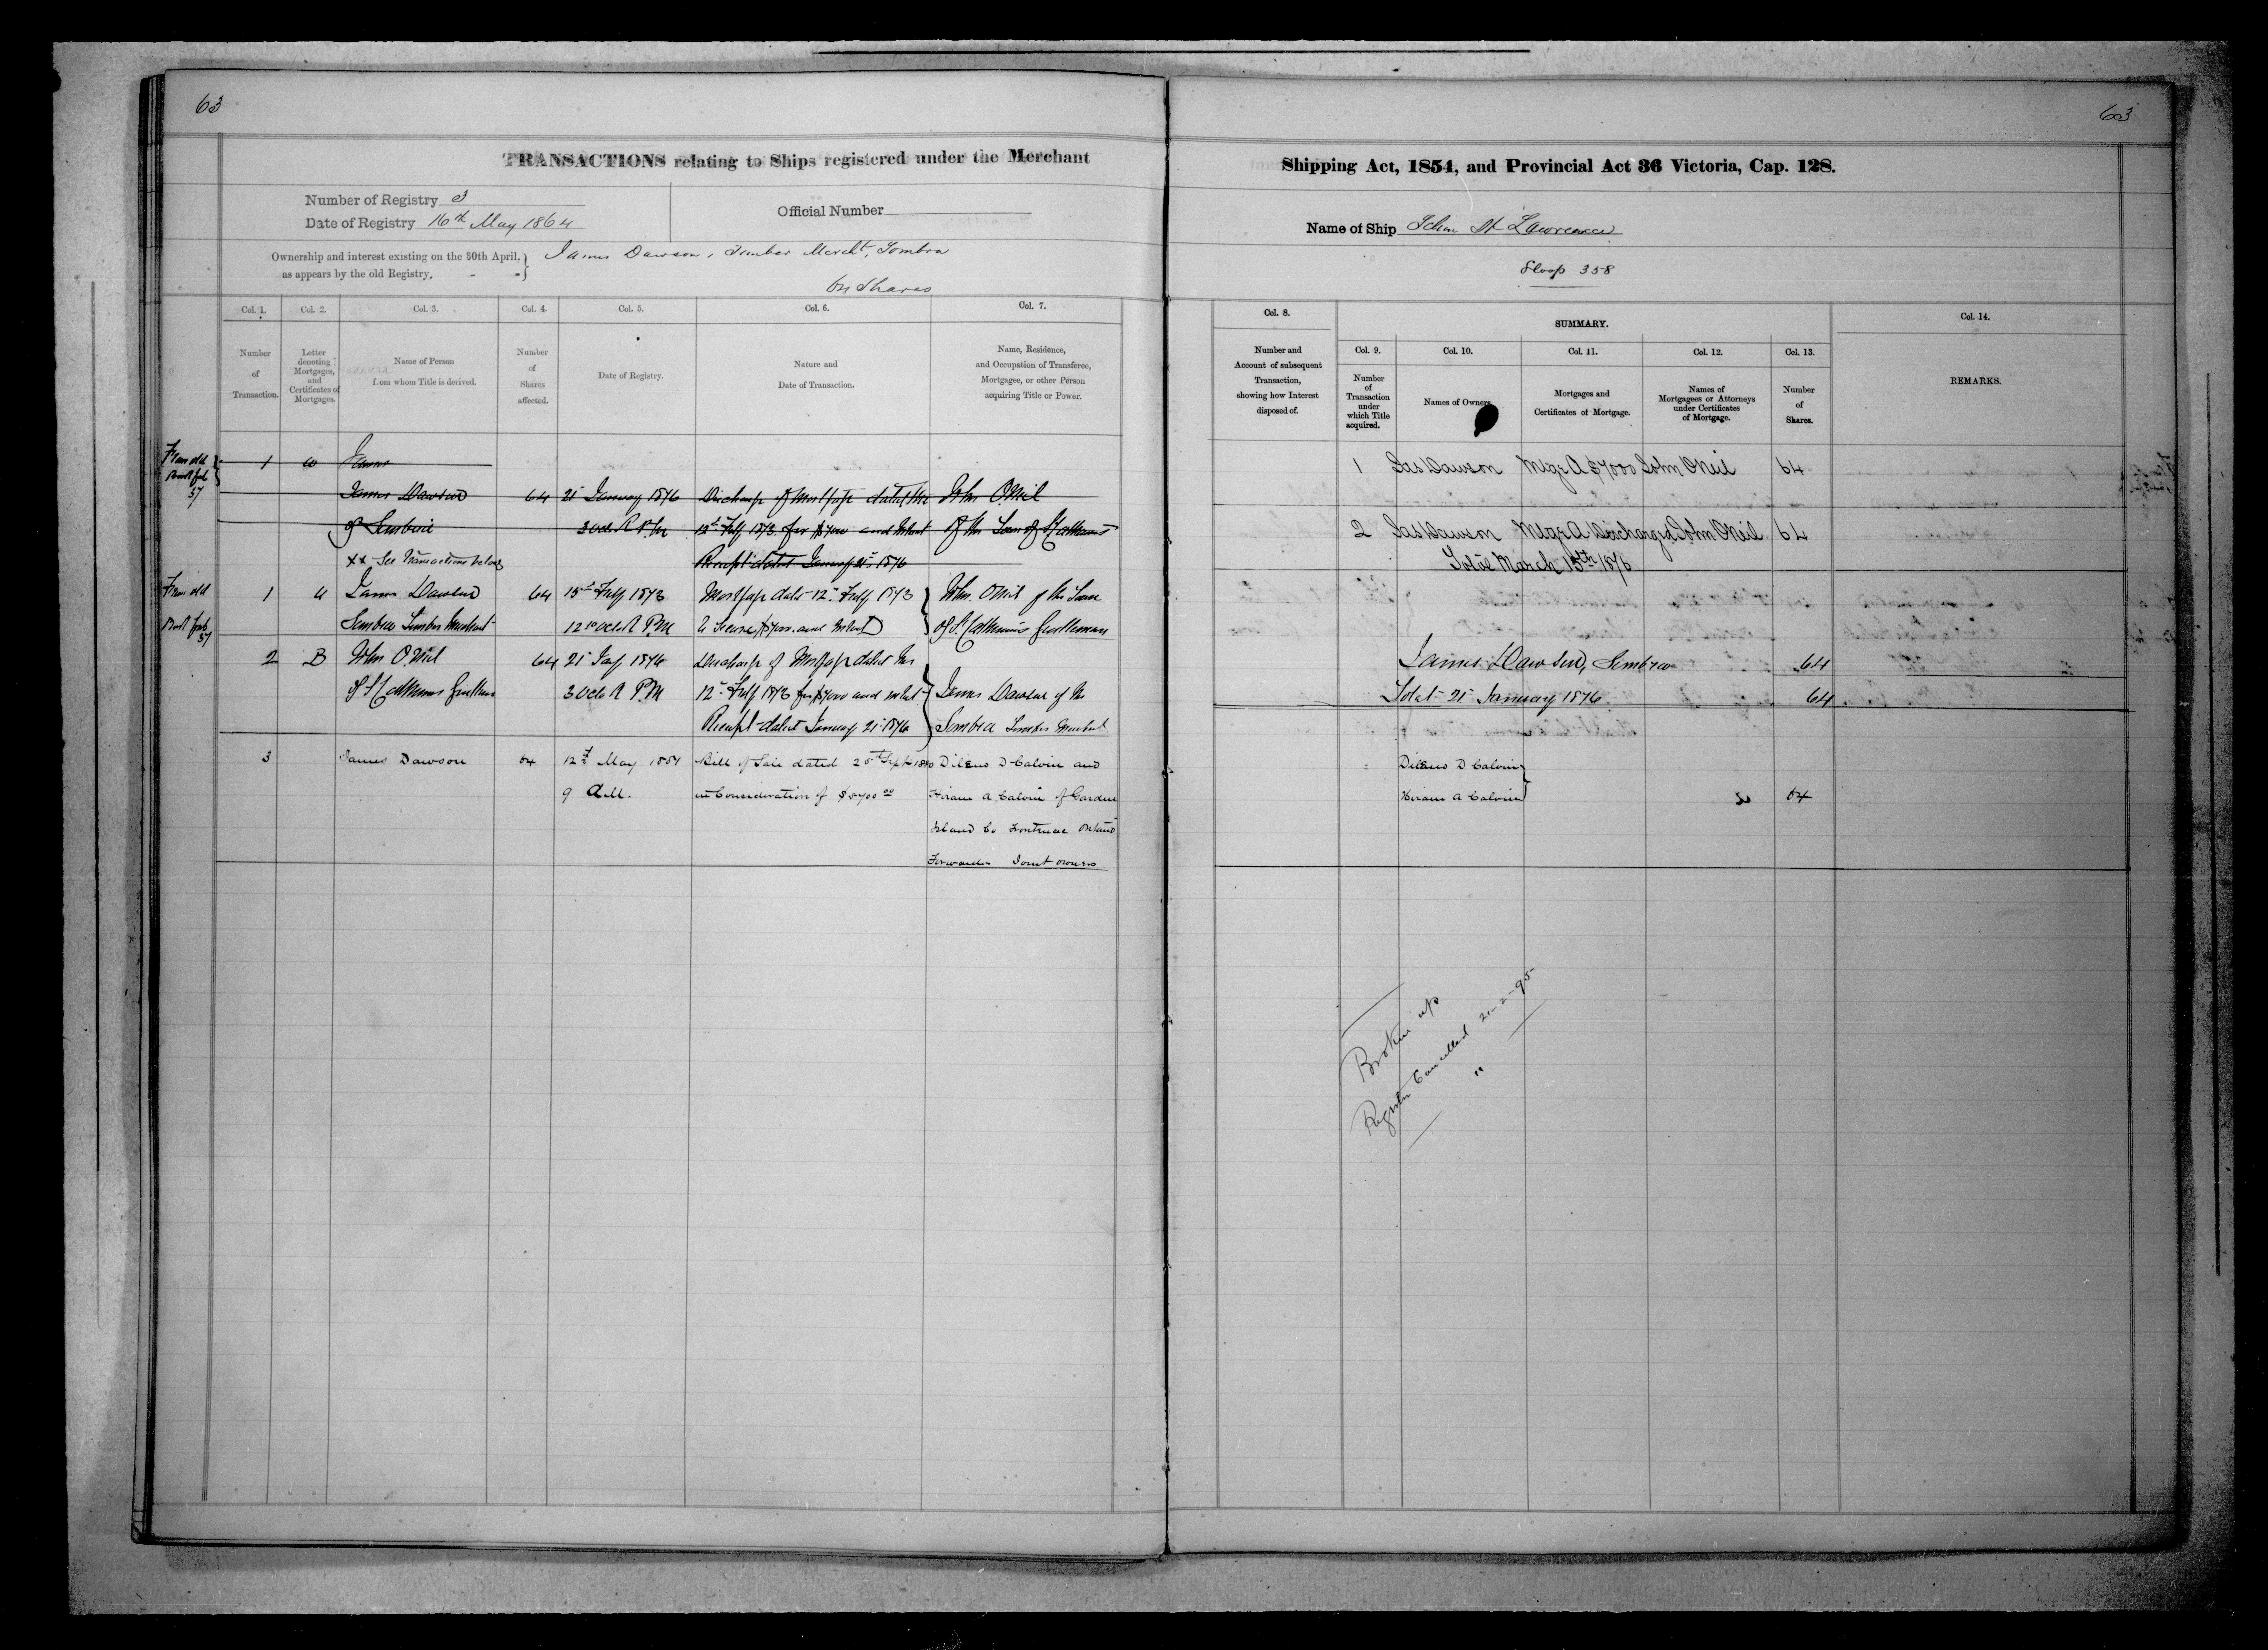 63
63
TRANSACTIONS relating to Ships registered under the Merchant
Shipping Act, 1854, and Provincial Act 36 Victoria, Cap. 128.
Number of Registry 3
Date of Registry 16th May 1864
Official Number
Name of Ship Schr St Lawrence
Sloop 358
Ownership and interest existing on the 30th April,
as appears by the old Registry,
James Dawson, Timber Mercht, Sombra
64 Shares
Col. 1.
Number
of
Transaction.
Col. 2.
Letter
denoting
Mortgages,
and
Certificates of
Mortgages.
Col. 3.
Name of Person
from whom Title is derived.
Col. 4.
Number
of
Shares
affected.
Col. 5.
Date of Registry.
Col. 6.
Nature and
Date of Transaction.
Col. 7.
Name, Residence,
and Occupation of Transferee,
Mortgagee, or other Person
acquiring Title or Power.
Col. 8.
Number and
Account of subsequent
Transaction,
showing how Interest
disposed of.
SUMMARY.
Col. 9.
Number
of
Transaction
under
which Title
acquired.
Col. 10.
Names of Owners.
Col. 11.
Mortgages and
Certificates of Mortgage.
Col. 12.
Names of
Mortgagees or Attorneys
under Certificates
of Mortgage.
Col. 13.
Number
of
Shares.
Col. 14.
REMARKS.
From old
Book fol
57
1 James
James Dawson 64 21 January 1876 Discharge of Mortgage dated the John O'Neil
of Sombra 3 Oclock P.M. 12th Feby 1873 for $7000 and Interest of the Town of St Catharines
xx See Transactions below Receipt dated January 21st 1876
From old
Book fol
57
1 A James Dawson 64 15th Feby 1873 Mortgage date 12th Feby 1873 John O'Neil of the Town
Sombra Timber Merchant 12 Oclock P.M. to Secure $7000 and Interest of St Catharines Gentleman
2 B John O'Neil 64 21 Jay 1876 Discharge of Mortgage dated the
of St Catharines Gentleman 3 Oclock P.M. 12th Feby 1873 for $7000 and interest James Dawson of the
Receipt dated January 21st 1876 Sombra Timber Merchant
3 James Dawson 64 12th May 1884 Bill of Sale dated 25th Sept 1880 Dileno D Calvin and
9 A.M. in Consideration of $5700 00 Hiram A Calvin of Garden
Island Co Frontenac Ontario
Forwarders Joint owners
1 Jas Dawson Mtge A $7000 John O'Neil 64
2 Jas Dawson Mtge A Discharged John O'Neil 64
Total March 15th 1876
James Dawson, Sombra 64
Total 21st January 1876 64
Dileno D Calvin
Hiram A Calvin 64
Broken up
Register Cancelled 21-2-95
"